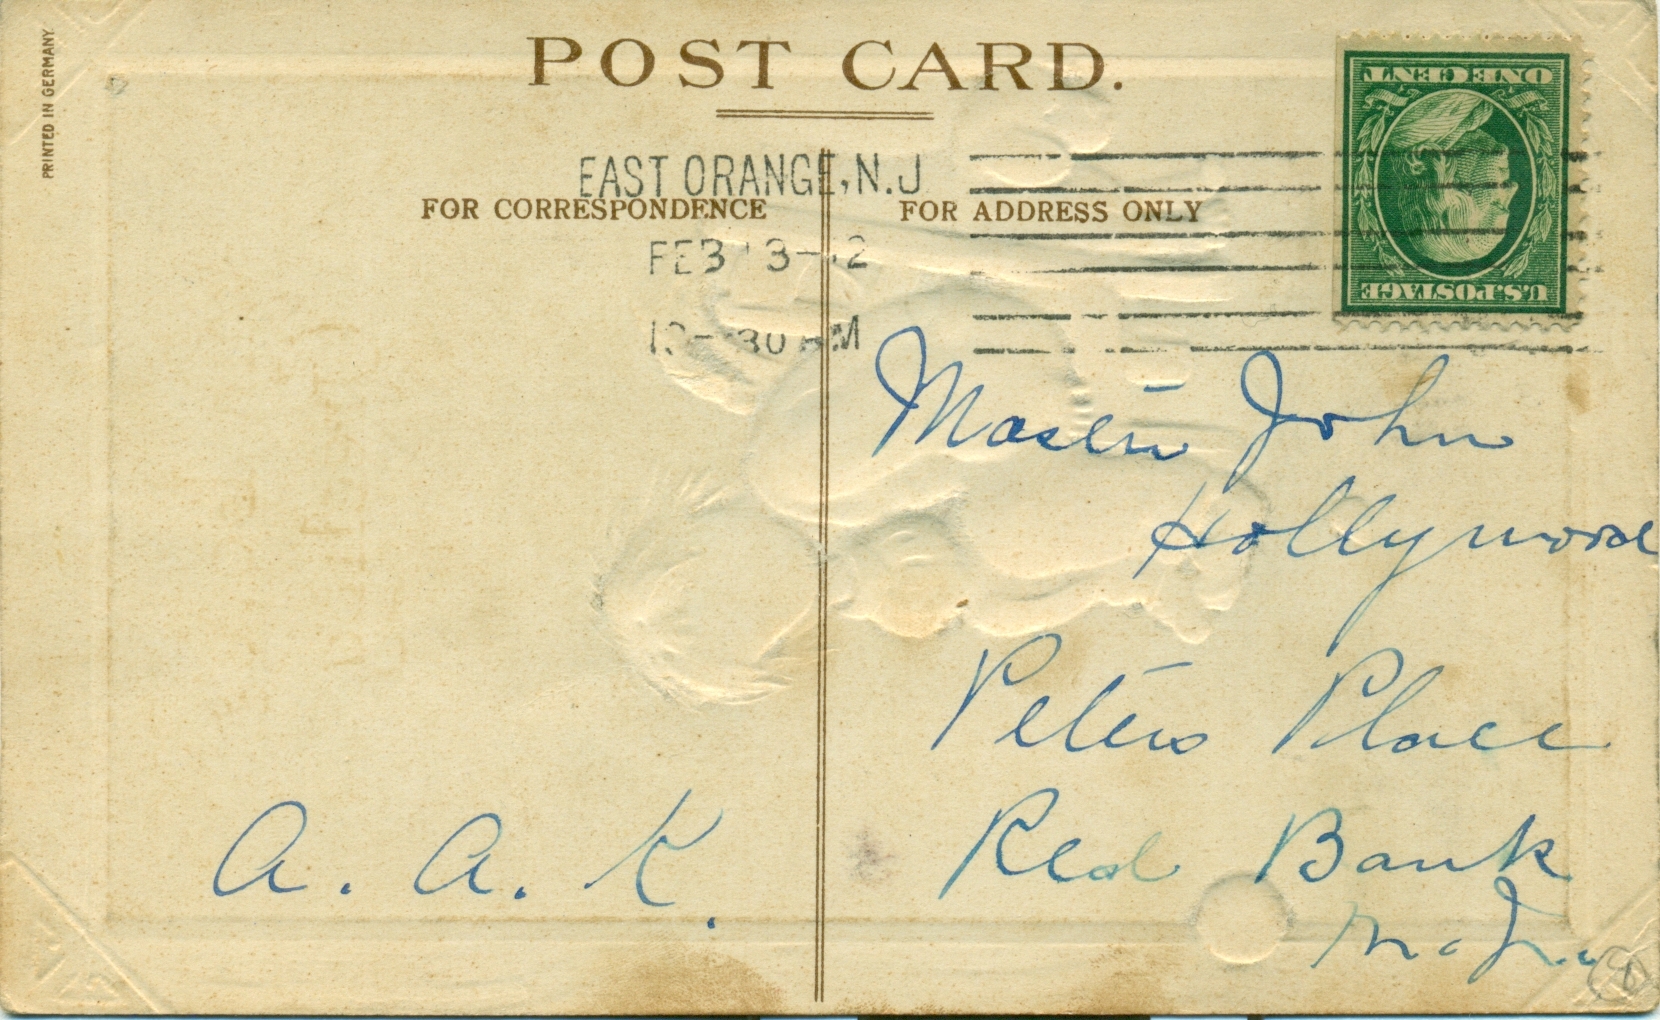 PRINTED IN GERMANY
POST CARD.
U.S. POSTAGE
ONE CENT
EAST ORANGE, N.J
FOR CORRESPONDENCE
FOR ADDRESS ONLY
FEB 13-12
30 M
Master John
Hollywood
Peters Place
Red Bank
N. J.
A. A. K.